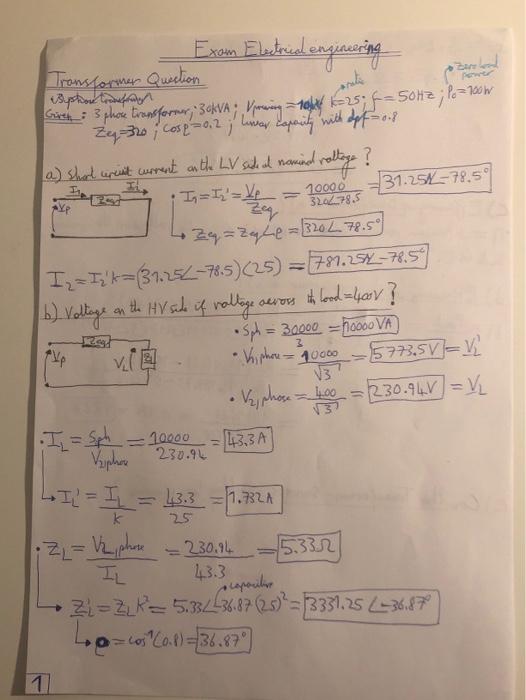 Exam Electrical engineering
Transformer Question
→ zero load power
→ ratio
Given : 3 phase transformer, 30kVA ; = 10kV k=25 ; f = 50Hz ; P₀ = 100W
Zeq=320 ; cosφ=0,2 ; linear capacity with dpf = 0.8
a) Short circuit current on the LV side at nominal voltage ?
I₁ I₂'
Vp Zeq
• I₁ = I₂' = Vp/Zeq = 10000/320∠78.5 = 31.25∠-78.5°
↳ Zeq = Zeq∠φ = 320∠78.5°
I₂ = I₂'k = (31.25∠-78.5)(25) = 781.25∠-78.5°
b) Voltage on the HV side if voltage across th load = 400V ?
Zeq
Vp VL' ZL'
• Sph = 30000/3 = 10000VA
• V₁,phase = 10000/√3 = 5773.5V = VL'
• V₂,phase = 400/√3 = 230.94V = VL
• IL = Sph/V₂,phase = 10000/230.94 = 43.3A
↳ IL' = IL/k = 43.3/25 = 1.732A
• ZL = V₂,phase/IL = 230.94/43.3 = 5.33Ω
→ capacitive
→ ZL' = ZL k² = 5.33∠-36.87 (25)² = 3331.25∠-36.87°
↳ φ = cos⁻¹(0.8) = 36.87°
1